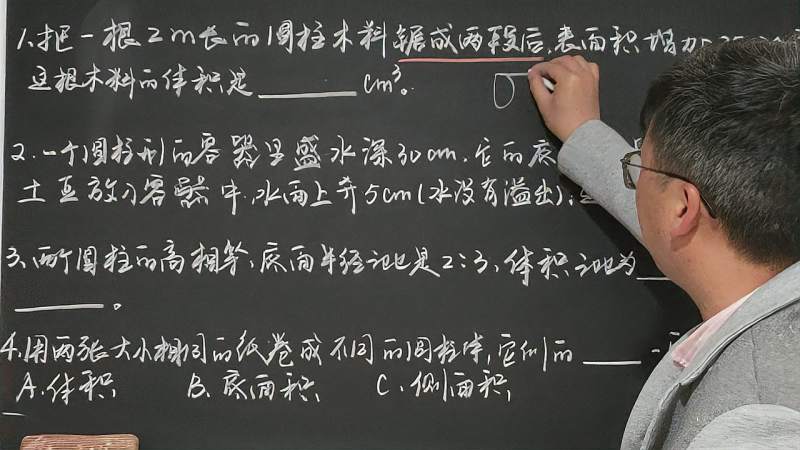 1、把一根2m长的圆柱木料锯成两段后,表面积增加
这根木料的体积是______cm³。
2.一个圆柱形的容器里盛水深30cm.它的底
土豆放入容器中,水面上升5cm(水没有溢出),
3、两个圆柱的高相等,底面半径之比是2:3,体积之比为__
______。
4.用两张大小相同的纸卷成不同的圆柱体,它们的____一
A.体积 B.底面积 C.侧面积